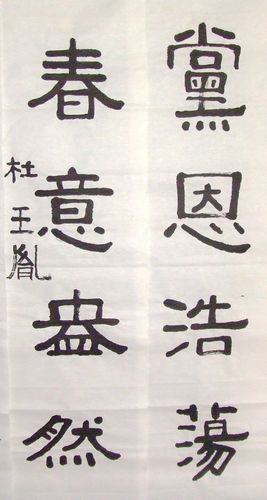 黨恩浩蕩
春意盎然
杜玉胤